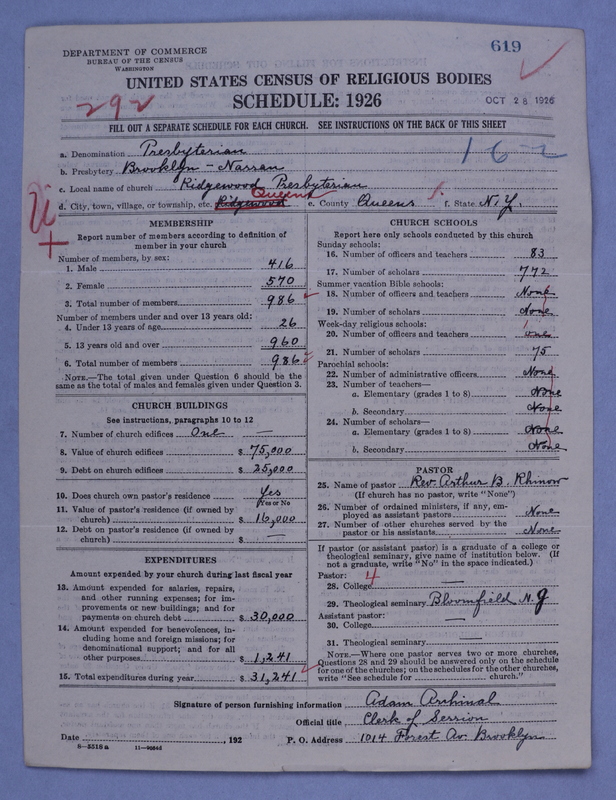 619
DEPARTMENT OF COMMERCE
BUREAU OF THE CENSUS
WASHINGTON
UNITED STATES CENSUS OF RELIGIOUS BODIES
292
SCHEDULE: 1926
OCT 28 1926
FILL OUT A SEPARATE SCHEDULE FOR EACH CHURCH. SEE INSTRUCTIONS ON THE BACK OF THIS SHEET
162
a. Denomination Presbyterian
b. Presbytery Brooklyn - Nassau
c. Local name of church Ridgewood Presbyterian
d. City, town, village, or township, etc. Ridgewood Queens e. County Queens f. State N.Y.
MEMBERSHIP
Report number of members according to definition of
member in your church
Number of members, by sex:
1. Male 416
2. Female 570
3. Total number of members 986
Number of members under and over 13 years old:
4. Under 13 years of age 26
5. 13 years old and over 960
6. Total number of members 986
NOTE.—The total given under Question 6 should be the
same as the total of males and females given under Question 3.
CHURCH BUILDINGS
See instructions, paragraphs 10 to 12
7. Number of church edifices One —
8. Value of church edifices $ 75,000
9. Debt on church edifices $ 25,000
10. Does church own pastor's residence Yes
Yes or No
11. Value of pastor's residence (if owned by
church) $ 16,000
12. Debt on pastor's residence (if owned by
church) $ —
EXPENDITURES
Amount expended by your church during last fiscal year
13. Amount expended for salaries, repairs,
and other running expenses; for im-
provements or new buildings; and for
payments on church debt $ 30,000
14. Amount expended for benevolences, in-
cluding home and foreign missions; for
denominational support; and for all
other purposes $ 1,241
15. Total expenditures during year $ 31,241
CHURCH SCHOOLS
Report here only schools conducted by this church
Sunday schools:
16. Number of officers and teachers 83
17. Number of scholars 772
Summer vacation Bible schools:
18. Number of officers and teachers None
19. Number of scholars None
Week-day religious schools:
20. Number of officers and teachers 1 one
21. Number of scholars 75
Parochial schools:
22. Number of administrative officers None
23. Number of teachers—
a. Elementary (grades 1 to 8) None
b. Secondary None
24. Number of scholars—
a. Elementary (grades 1 to 8) None
b. Secondary None
PASTOR
25. Name of pastor Rev. Arthur B.
(If church has no pastor, write "None")
26. Number of ordained ministers, if any, em-
ployed as assistant pastors None
27. Number of other churches served by the
pastor or his assistants None
If pastor (or assistant pastor) is a graduate of a college or
theological seminary, give name of institution below. (If
not a graduate, write "No" in the space indicated.)
Pastor: 4
28. College —
29. Theological seminary Bloomfield N.J
Assistant pastor:
30. College —
31. Theological seminary —
NOTE.—Where one pastor serves two or more churches,
Questions 28 and 29 should be answered only on the schedule
for one of the churches; on the schedules for the other churches,
write "See schedule for church."
Signature of person furnishing information Adam Archinal
Official title Clerk of Session
Date , 192 P. O. Address 1014 Forest Av. Brooklyn
8—5518a